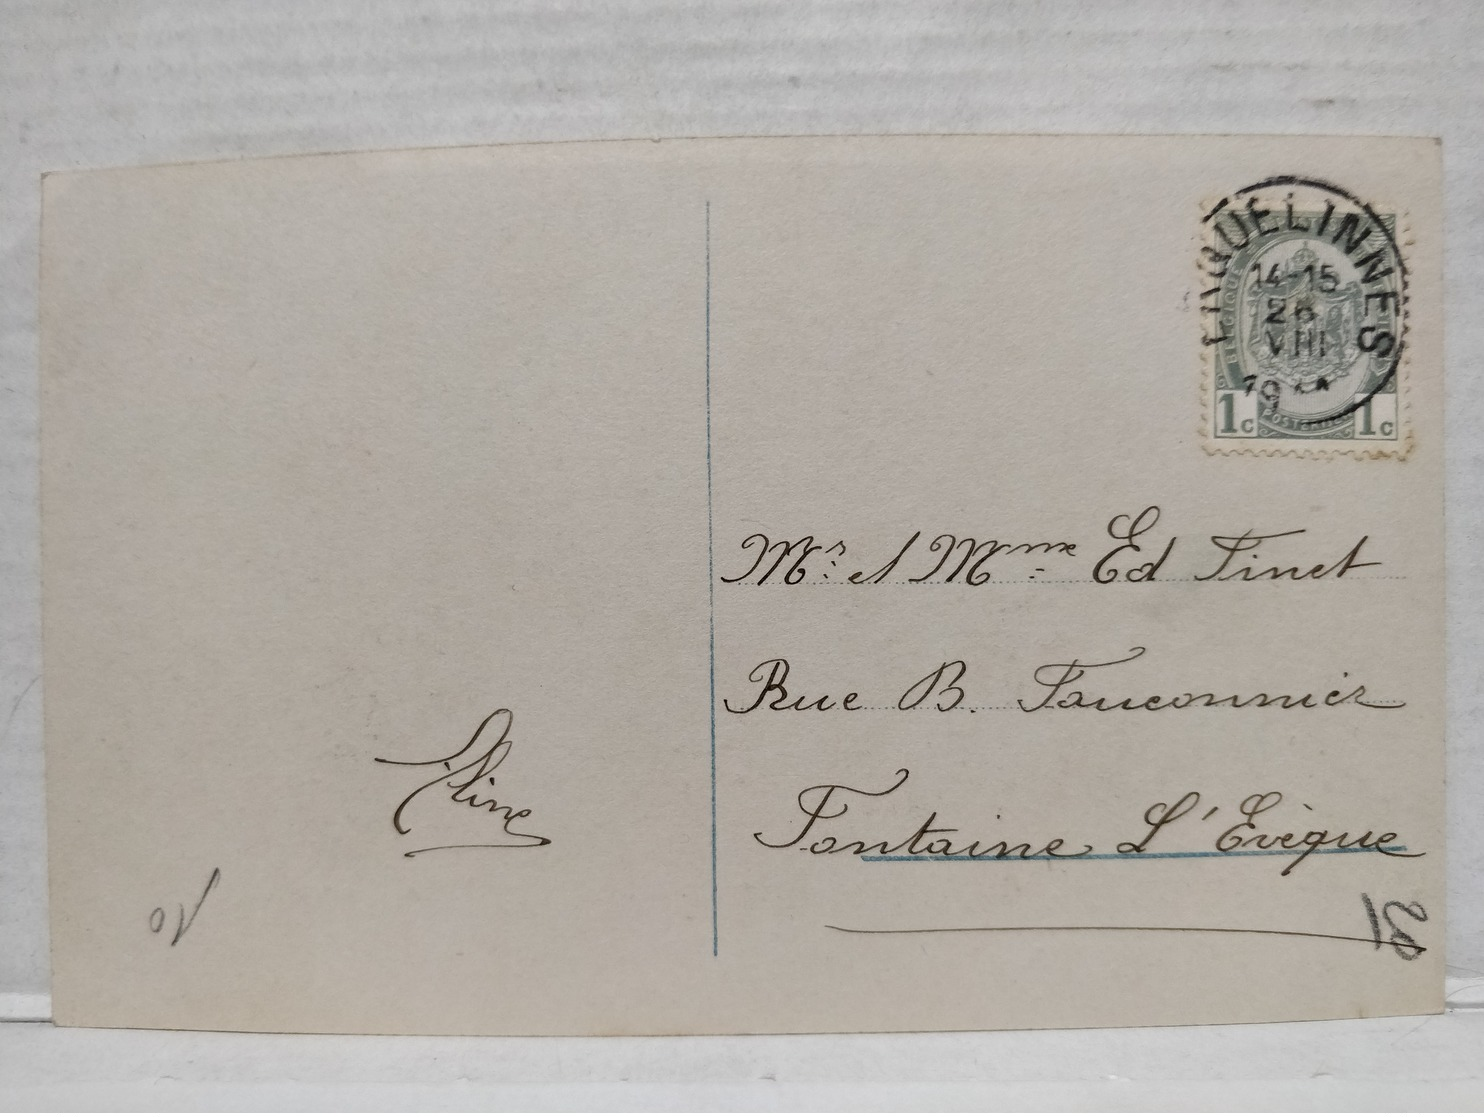 ERQUELINNES
14-15
VIII
BELGIQUE
1c 1c
Mr. et Mme Ed Finet
Rue B. Fauconnier
Fontaine L'Evèque
Aline